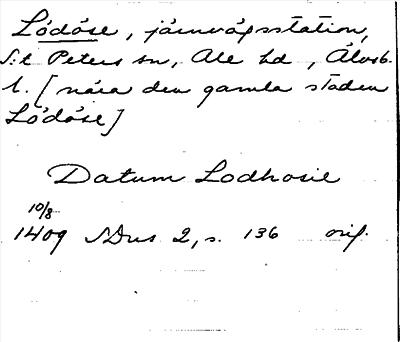 Lödöse, järnvägsstation,
S:t Peters sn, Ale hd, Älvsb.
l. [nära den gamla staden
Lödöse]
Datum Lodhosie
10/8
1409 SDns 2, s. 136 orig.